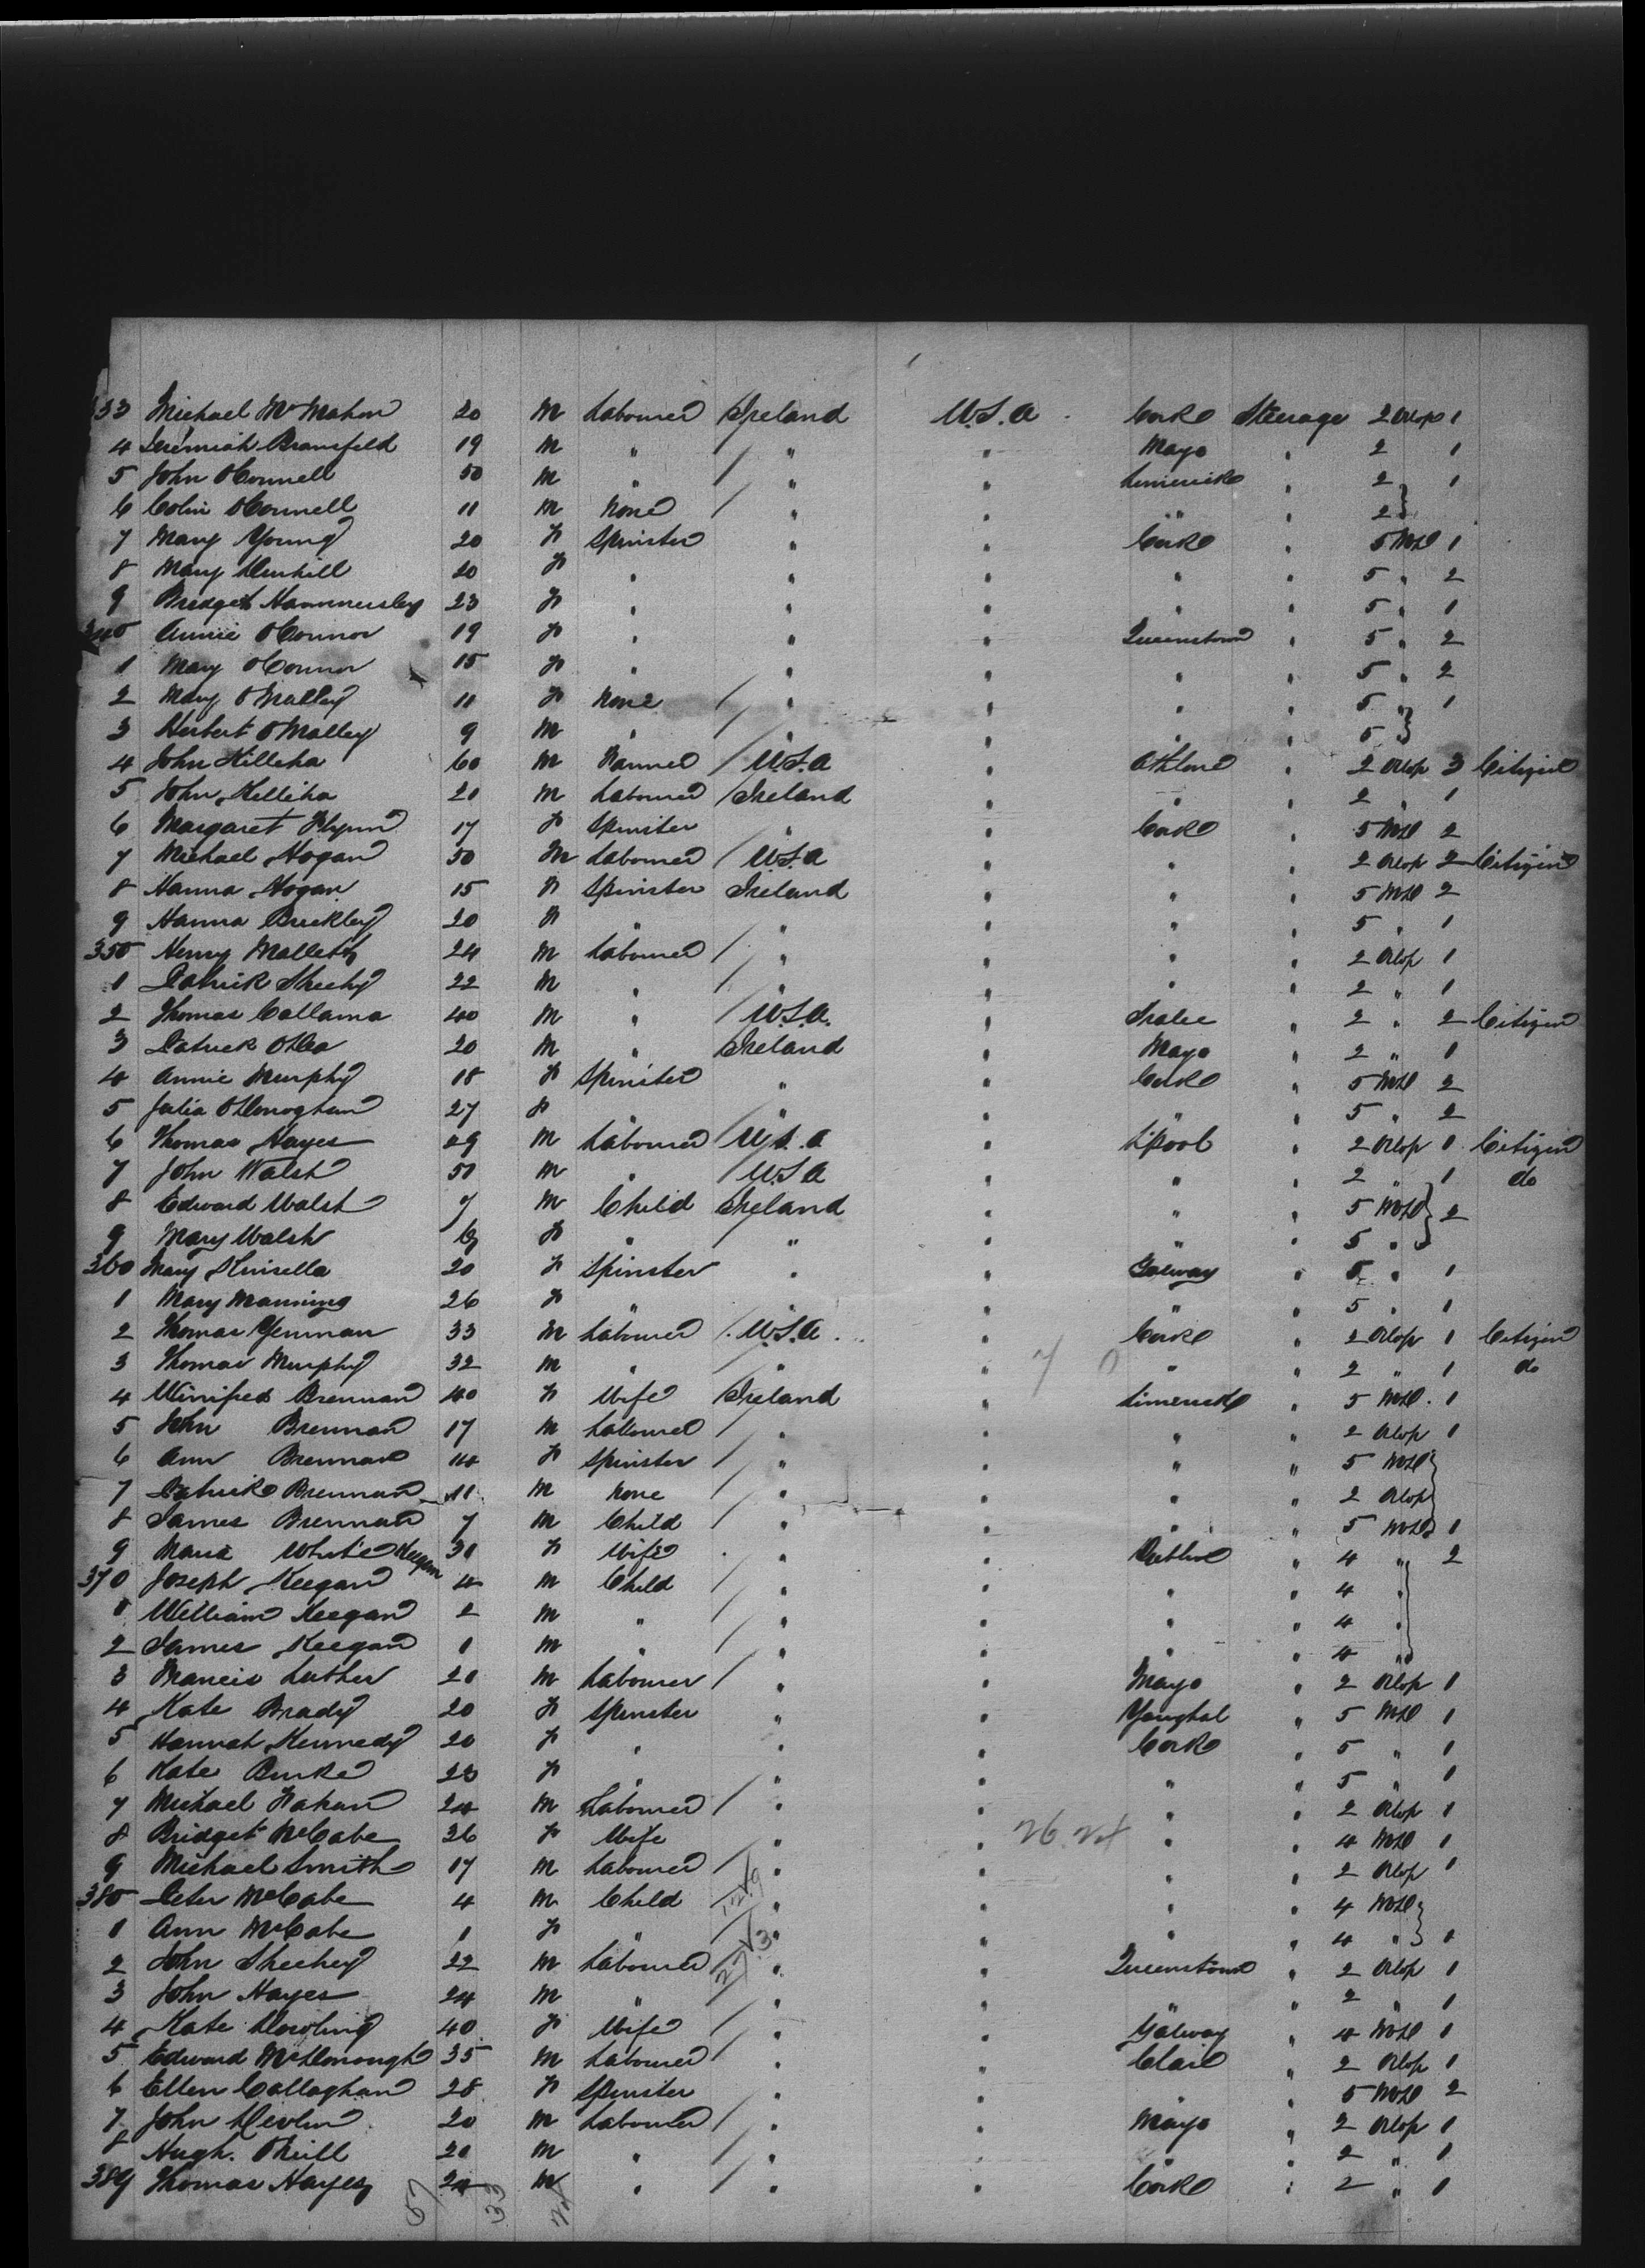 333 Michael McMahon 20 M Labourer Ireland U.S.A Cork Steerage 2 Orlop 1
4 Jeremiah Bransfeld 19 M " " " Mayo " 2 1
5 John OConnell 50 M " " " Limerick " 2 1
6 Colin OConnell 11 M None " " " " 2
7 Mary Young 20 F Spinster " " Cork " 5 1
8 Mary 20 F " " " " " 5 " 2
9 Bridget Hammersley 23 F " " " " " 5 " 1
340 Annie OConnor 19 F " " " Queenstown " 5 " 2
1 Mary OConnor 15 F " " " " " 5 " 2
2 Mary OMalley 11 F None " " " " 5 " 1
3 Herbert OMalley 9 M " " " " " 5
4 John Killeha 60 M Farmer U.S.A " Athlone " 2 Orlop 3 Citizen
5 John Killiha 21 M Labourer Ireland " " " 2 " 1
6 Margaret Flynn 17 F Spinster " " Cork " 5 2
7 Michael Hogan 50 M Labourer U.S.A " " " 2 Orlop 2 Citizen
8 Hanna Hogan 15 F Spinster Ireland " " " 5 2
9 Hanna Buckley 20 F " " " " " 5 " 1
350 Henry 24 M Labourer " " " " 2 Orlop 1
1 Patrick Sheehy 22 M " " " " " 2 " 1
2 Thomas Callama 40 M " U.S.A. " Tralee " 2 " 2 Citizen
3 Patrick 20 M " Ireland " Mayo " 2 " 1
4 Annie Murphy 18 F Spinster " " Cork " 5 2
5 Julia ODonoghue 27 F " " " " " 5 " 2
6 Thomas Hayes 29 M Labourer U.S.A " L'pool " 2 Orlop 1 Citizen
7 John Walsh 50 M " U.S.A " " " 2 " 1 do
8 Edward Walsh 7 M Child Ireland " " " 5 2
9 Mary Walsh 6 F " " " " " 5 "
360 Mary Kinsella 20 F Spinster " " Galway " 5 " 1
1 Mary Manning 26 F " " " " " 5 " 1
2 Thomas 33 M Labourer U.S.A " Cork " 2 Orlop 1 Citizen
3 Thomas Murphy 32 M " " " " " 2 " 1 do
4 Winifred Brennan 40 F Wife Ireland " Limerick " 5 1
5 John Brennan 17 M Labourer " " " " 2 Orlop 1
6 Ann Brennan 14 F Spinster " " " " 5
7 Patrick Brennan 11 M None " " " " 2 Orlop
8 James Brennan 7 M Child " " " " 5 1
9 Maria White Keegan 30 F Wife " " Dublin " 4 " 2
370 Joseph Keegan 4 M Child " " " " 4 "
1 William Keegan 2 M " " " " " 4 "
2 James Keegan 1 M " " " " " 4 "
3 Francis Luther 20 M Labourer " " Mayo " 2 Orlop 1
4 Kate Brady 20 F Spinster " " Youghal " 5 1
5 Hannah Kennedy 20 F " " " Cork " 5 " 1
6 Kate Burke 23 F " " " " " 5 " 1
7 Michael 24 M Labourer " " " " 2 Orlop 1
8 Bridget McCabe 36 F Wife " " " " 4 1
9 Michael Smith 17 M Labourer " " " " 2 Orlop 1
380 Peter McCabe 4 M Child " " " " 4
1 Ann McCabe 1 F " " " " " 4 " 1
2 John Sheehey 22 M Labourer " " Queenstown " 2 Orlop 1
3 John Hayes 24 M " " " " " 2 " 1
4 Kate Dowling 40 F Wife " " Galway " 4 1
5 Edward McDonough 35 M Labourer " " Clare " 2 Orlop 1
6 Ellen Callaghan 28 F Spinster " " " " 5 2
7 John Devlin 20 M Labourer " " Mayo " 2 Orlop 1
8 Hugh ONeill 20 M " " " " " 2 " 1
389 Thomas Hayes 24 M " " " Cork " 2 " 1